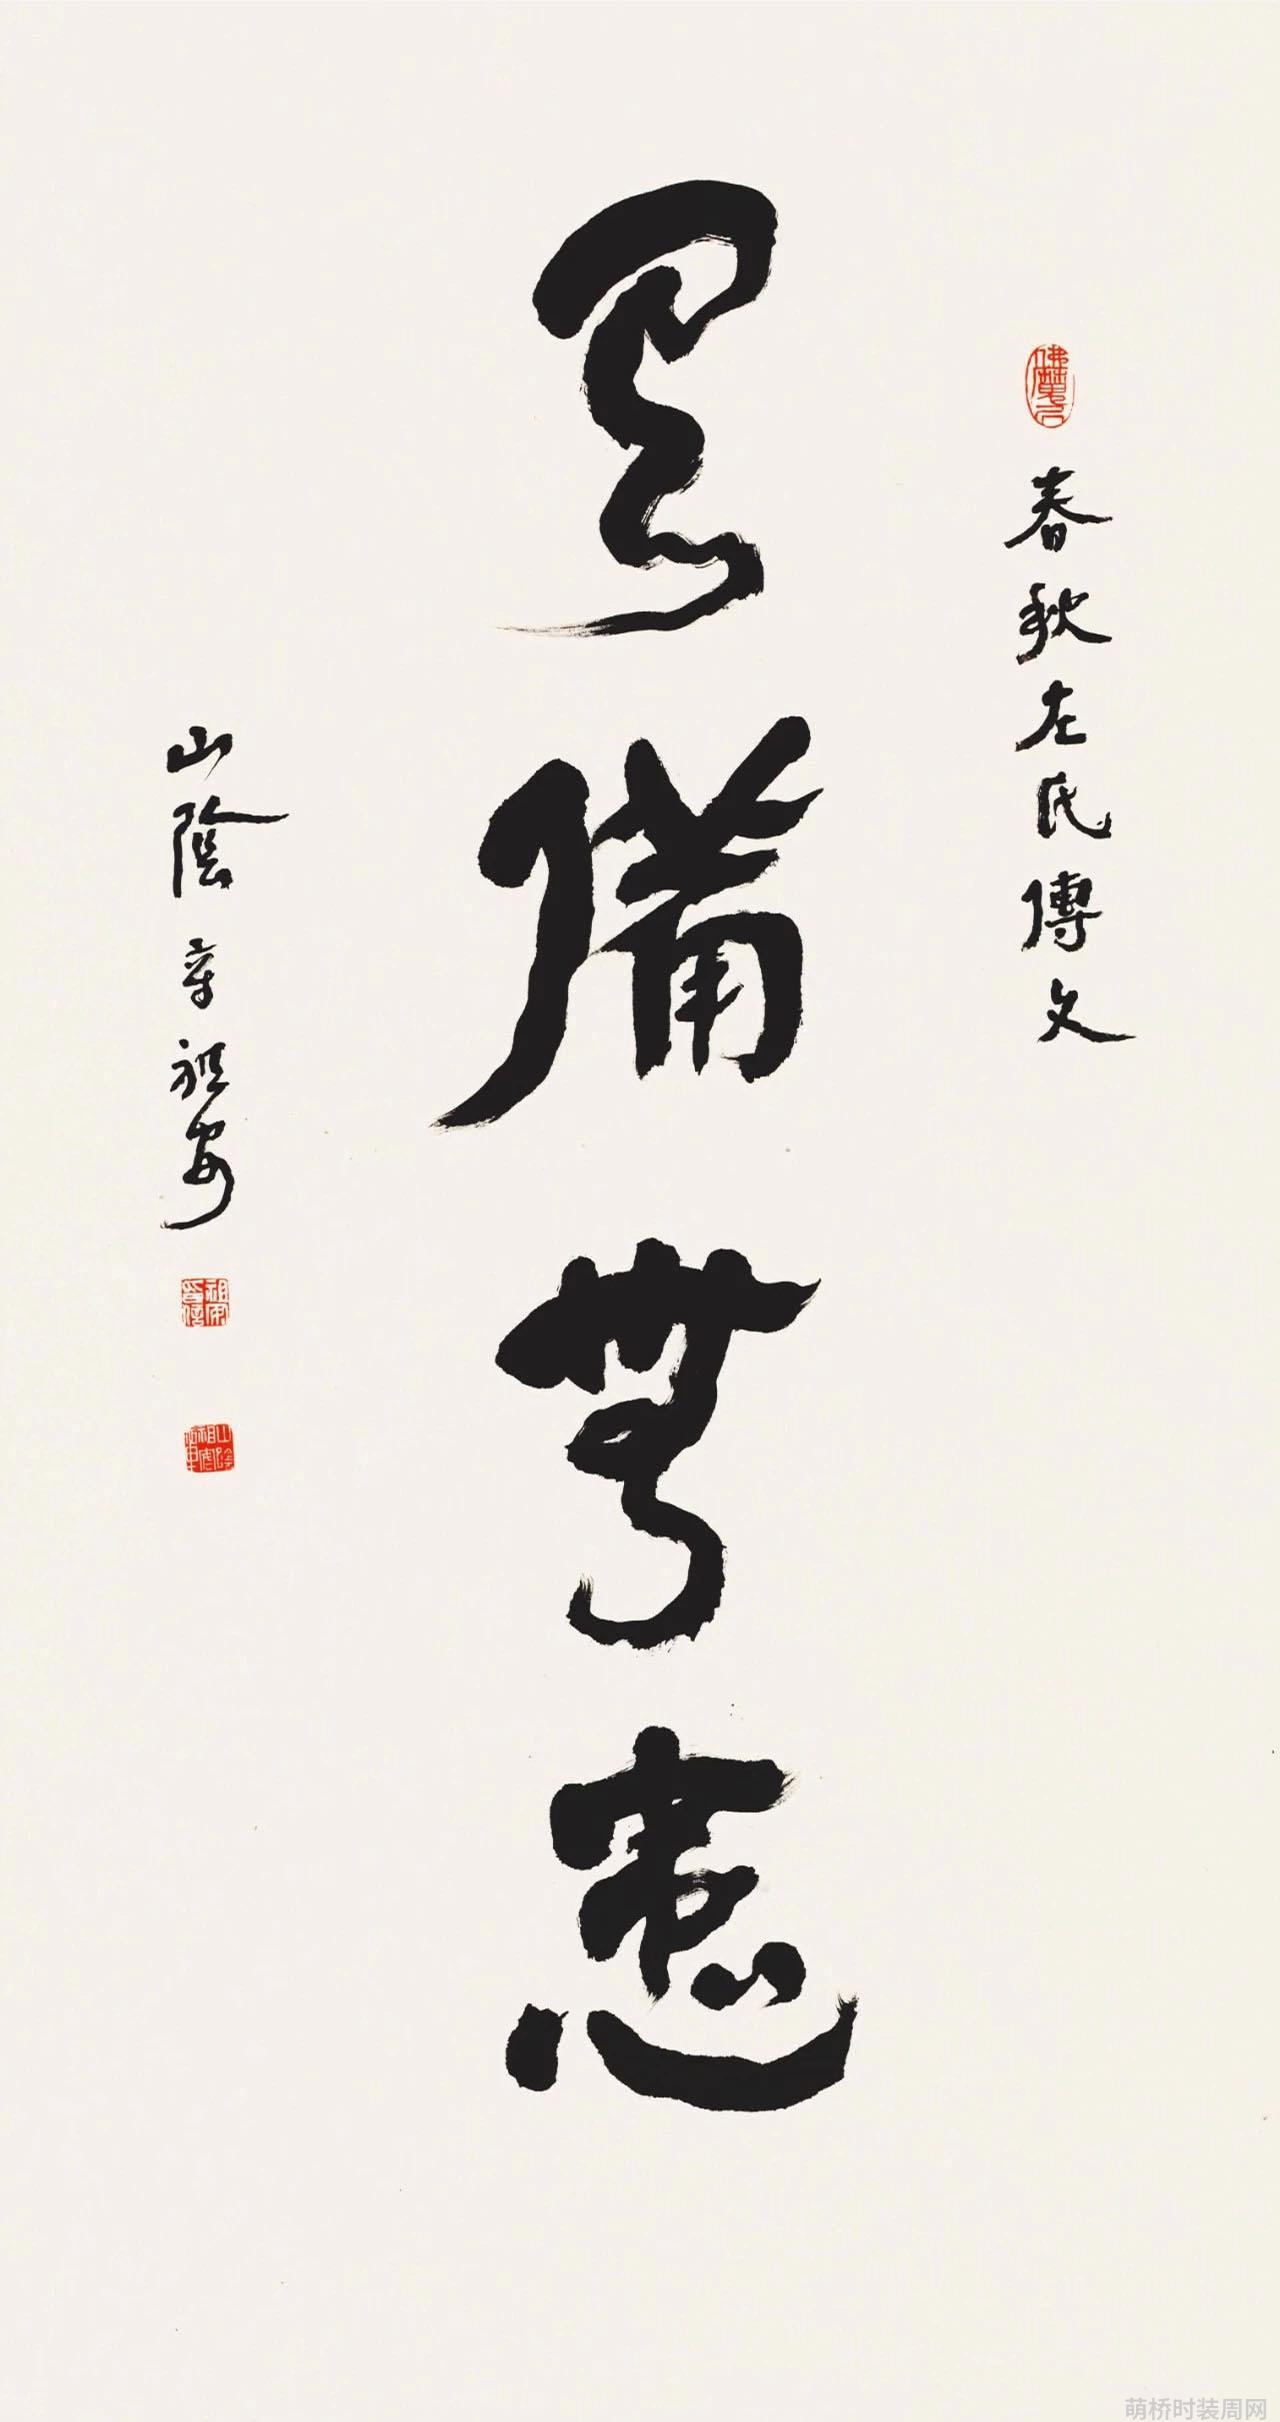 春秋左氏傳文
有備無患
山陰章祖安
萌桥时装周网